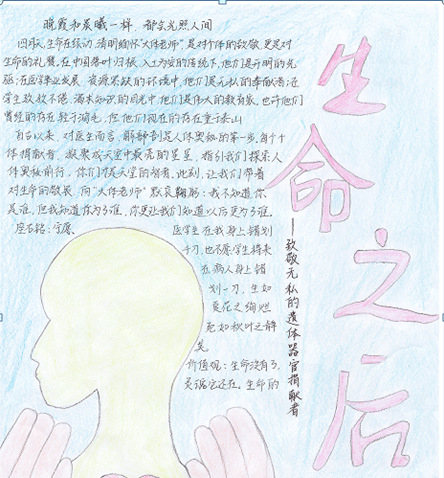 晚霞和晨曦一样，都会光照人间
四月，生命在绿动，清明缅怀"大体老师"，是对个体的致敬，更是对
生命的礼赞。在中国落叶归根、入土为安的传统下，他们是开明的先
驱；在医学事业发展、资源紧缺的环境中，他们是无私的奉献者；在
学生孜孜不倦、渴求知识的目光中，他们是伟大的教育家。也许他们
曾经的存在轻于鸿毛，但他们现在的存在重于泰山
自古以来，对医生而言，解剖刀是人体奥秘的第一步，每个个
体捐献者，凝聚成天空中最亮的星星，指引我们探索人
体奥秘前行，你们便是天堂的智者。此刻，让我们带着
对生命的敬畏，向"大体老师"默哀鞠躬：我不知道你
是谁，但我知道你为了谁，你更让我们知道以后更为了谁。
座右铭：宁愿
医学生在我身上错划
千刀，也不愿学生将来
在病人身上错
划一刀，生如
夏花之绚烂
死如秋叶之静
美
价值观：生命没有了，
灵魂它还在。生命的
生命之后
——致敬无私的遗体器官捐献者